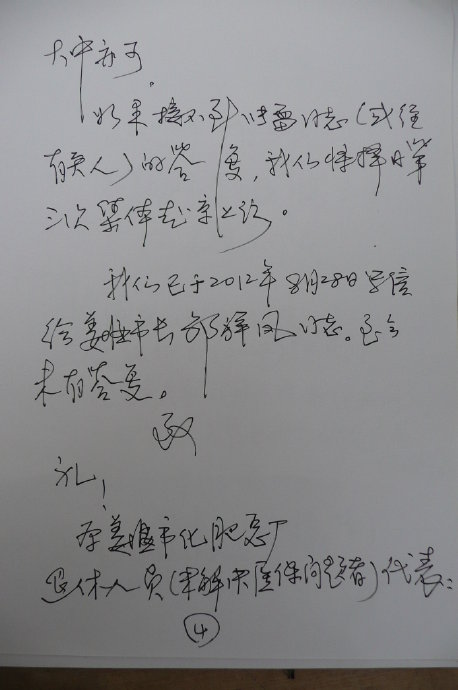 大中亦可。
如果接不到张雷同志(或经
有关人)的答复,我们将择日第
三次集体赴京上访。
我们已于2012年8月28日写信
给姜堰市长邹祥凤同志。至今
未有答复。
致
礼!
原姜堰市化肥总厂
退休人员(未解决医保问题者)代表:
4